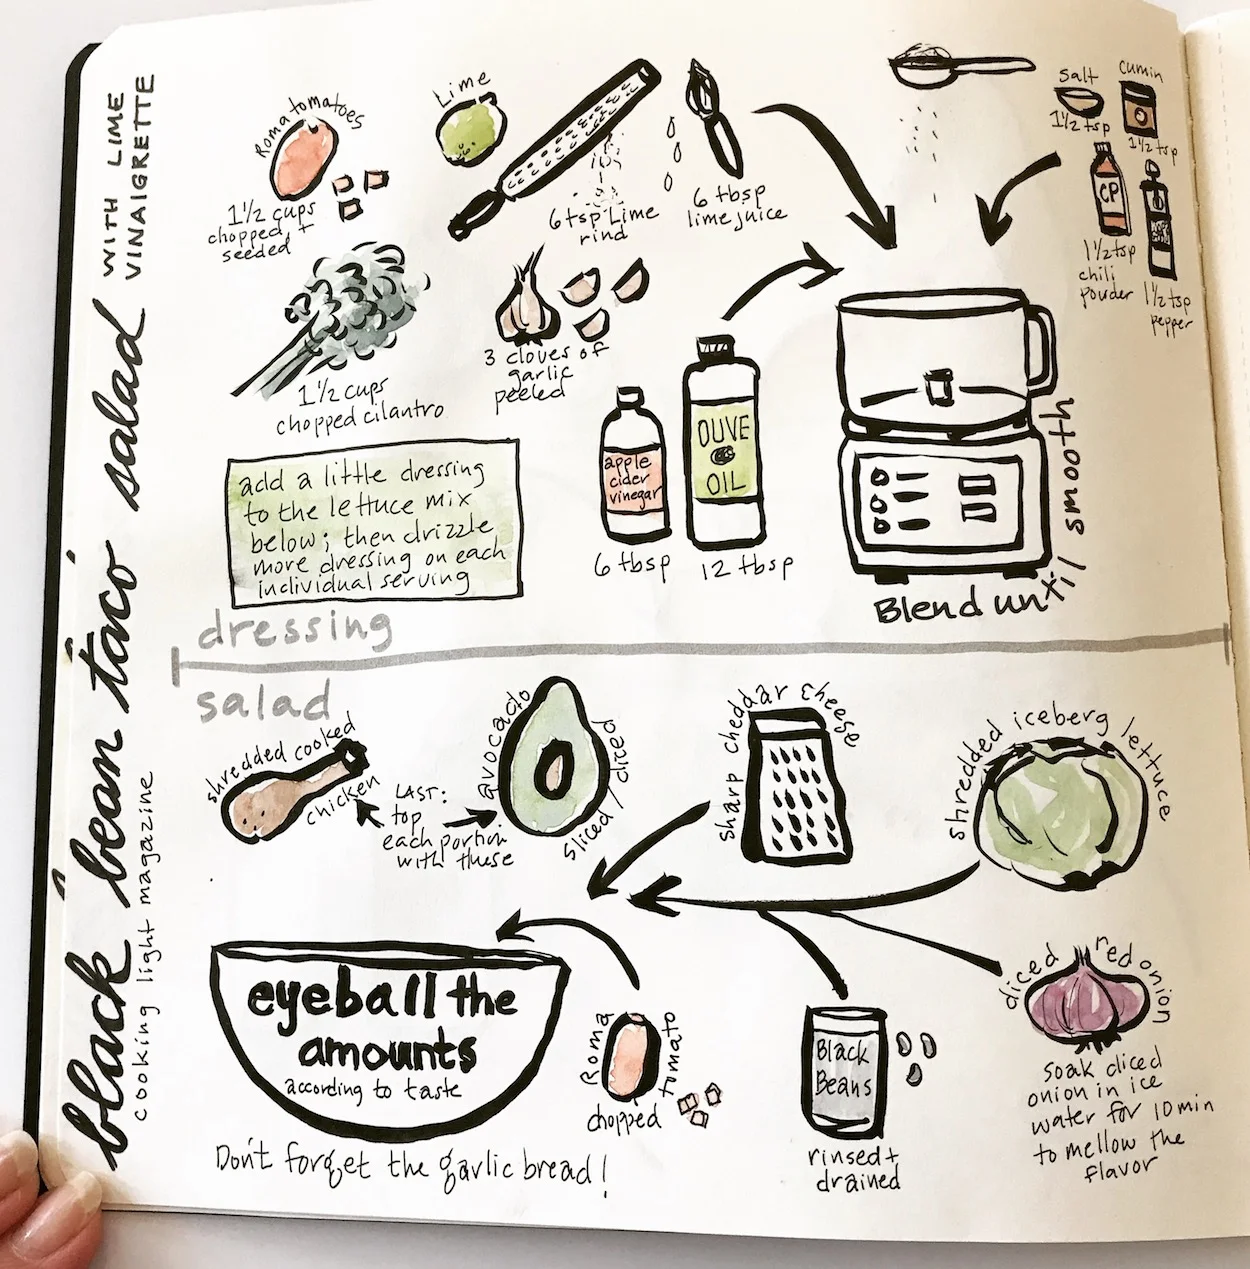 black bean taco salad
WITH LIME
VINAIGRETTE
cooking light magazine
Roma tomatoes
1 1/2 cups
chopped +
seeded
Lime
6 tsp Lime
rind
6 tbsp
lime juice
salt
1 1/2 tsp
cumin
1 1/2 tsp
CP
1 1/2 tsp
chili
powder
1 1/2 tsp
pepper
1 1/2 cups
chopped cilantro
3 cloves of
garlic
peeled
apple
cider
vinegar
6 tbsp
OLIVE
OIL
12 tbsp
Blend until smooth
add a little dressing
to the lettuce mix
below; then drizzle
more dressing on each
individual serving
dressing
salad
shredded cooked
chicken
LAST:
top
each portion
with these
avocado
sliced / diced
sharp cheddar cheese
shredded iceberg lettuce
eyeball the
amounts
according to taste
Roma
tomato
chopped
Black
Beans
rinsed +
drained
diced red onion
soak diced
onion in ice
water for 10 min
to mellow the
flavor
Don't forget the garlic bread!